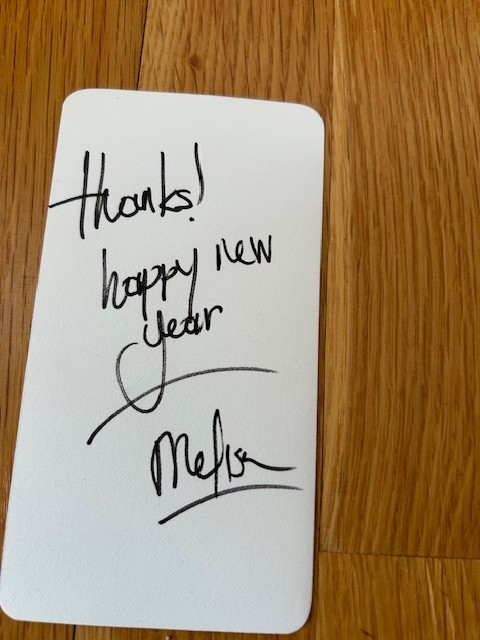 thanks!
happy new
year
Melisa